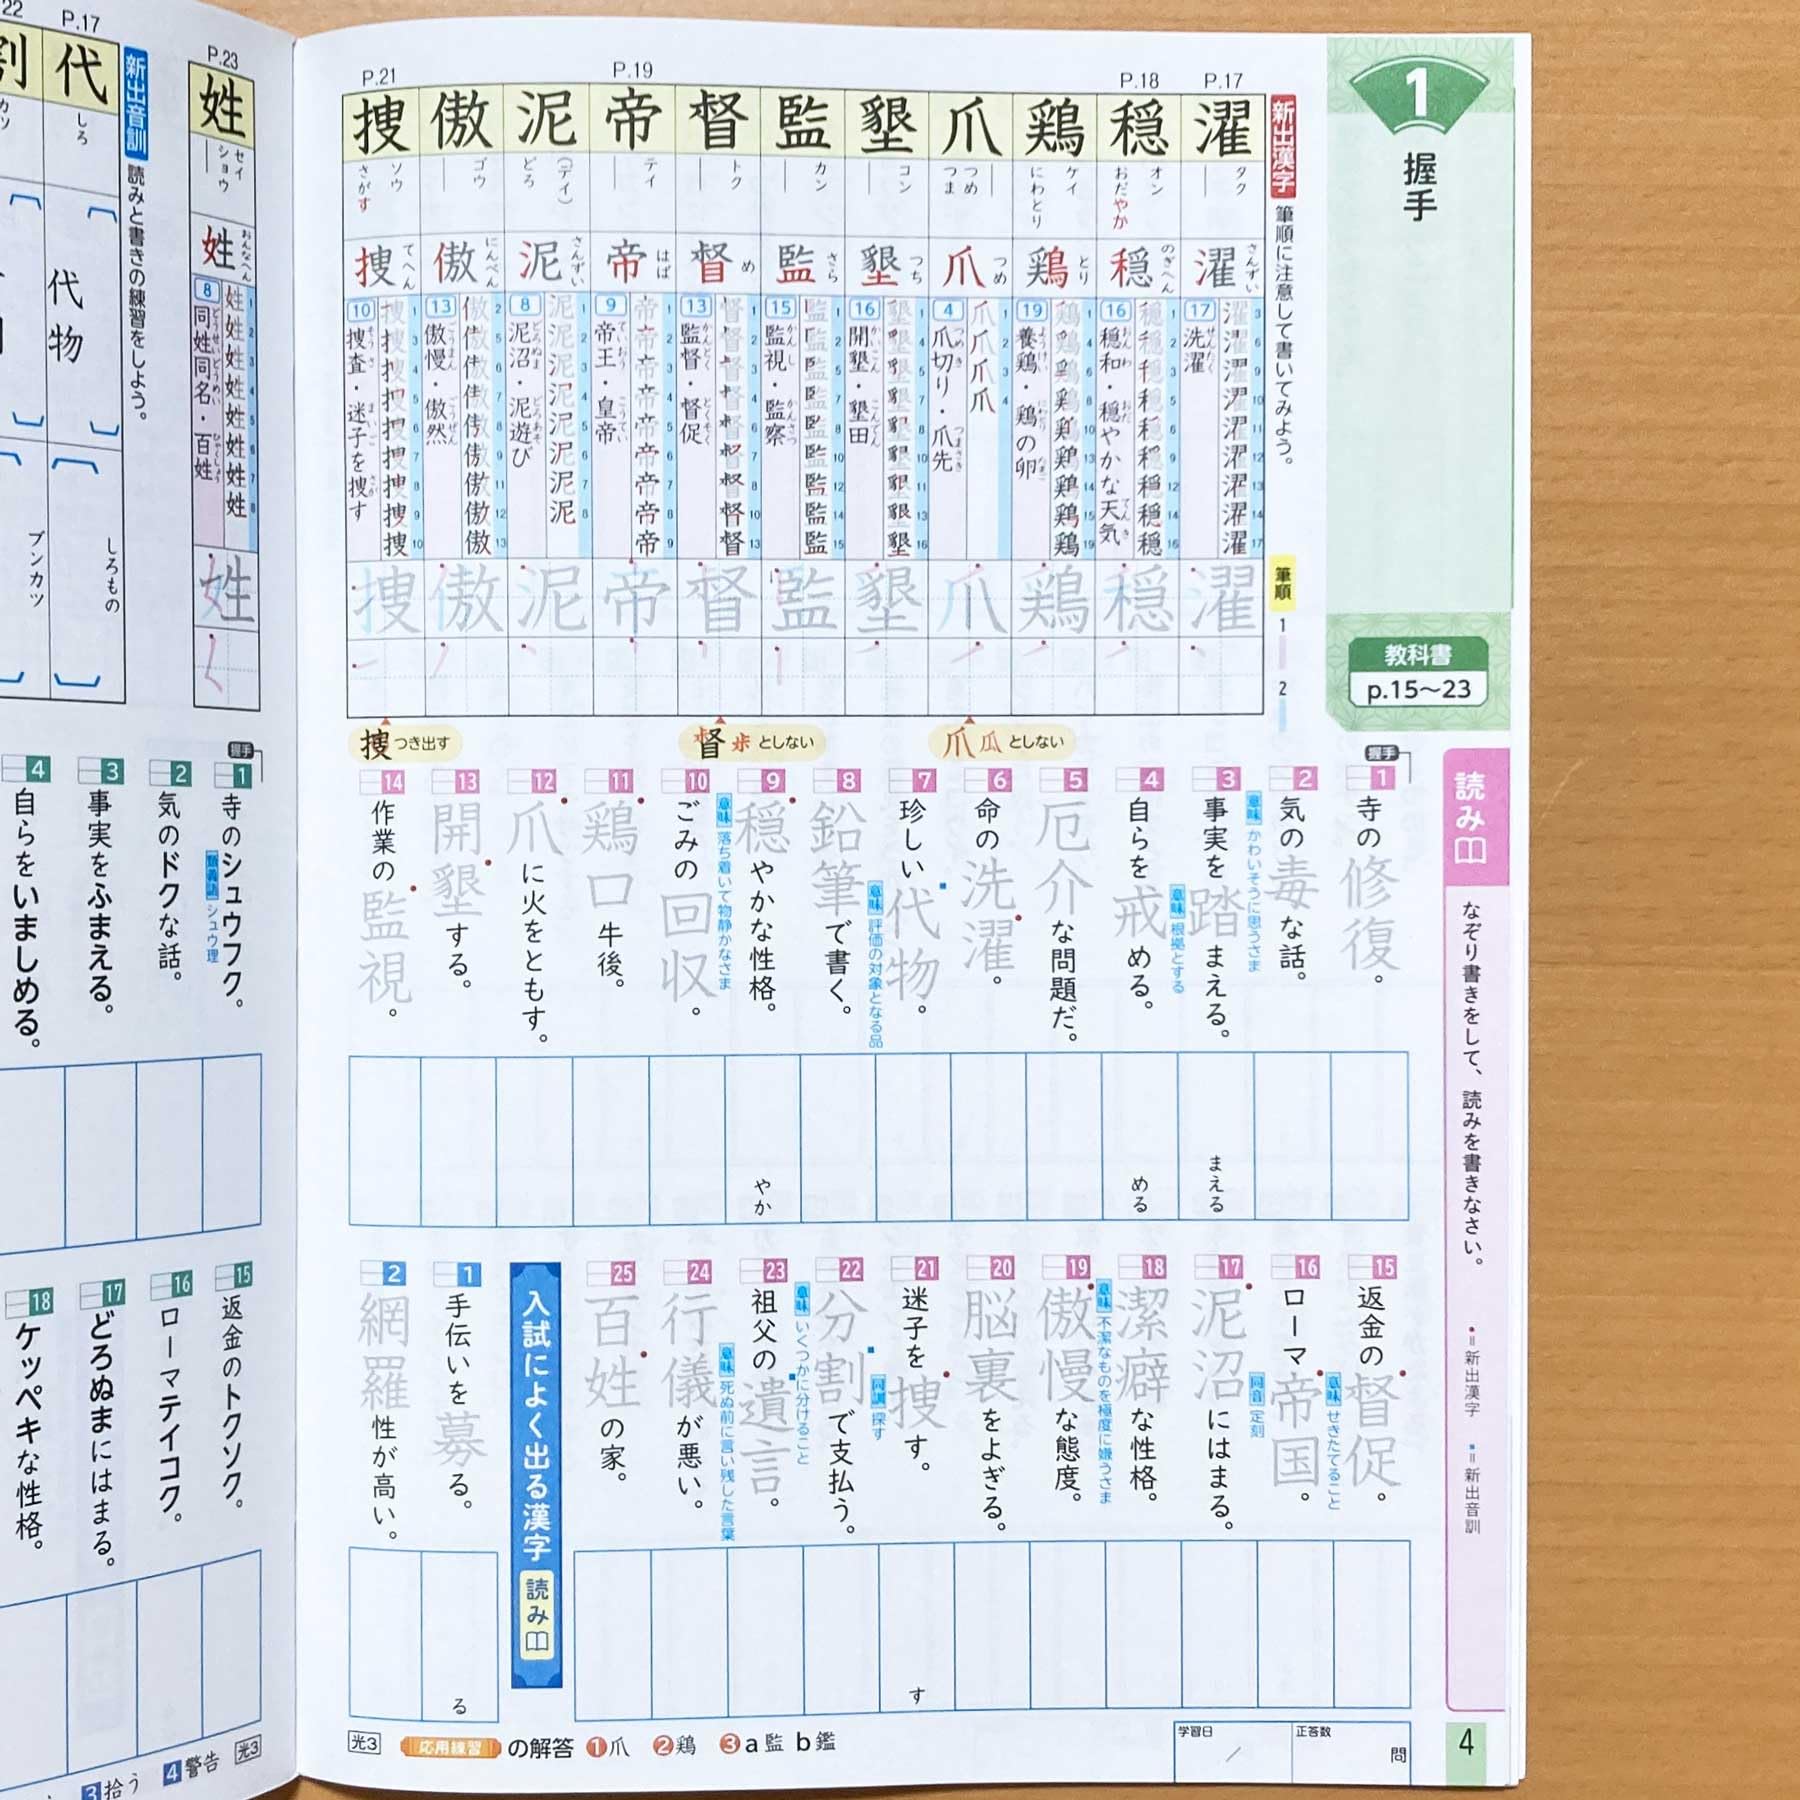 1
握手
教科書
p.15～23
新出漢字 筆順に注意して書いてみよう。
筆順 1 2
P.17
濯 タク
濯 さんずい
17 洗濯 せんたく
P.18
穏 オン おだやか
穏 のぎへん
16 穏和・穏やかな天気
鶏 ケイ にわとり
鶏 とり
19 養鶏・鶏の卵
爪 つめ つま
爪 つめ
4 爪切り・爪先
墾 コン
墾 つち
16 開墾・墾田
監 カン
監 さら
15 監視・監察
督 トク
督 め
13 監督・督促
P.19
帝 テイ
帝 はば
9 帝王・皇帝
泥 （デイ） どろ
泥 さんずい
8 泥沼・泥遊び
傲 ゴウ
傲 にんべん
13 傲慢・傲然
P.21
捜 ソウ さがす
捜 てへん
10 捜査・迷子を捜す
爪 瓜 としない
督 としない
捜 つき出す
読み
なぞり書きをして、読みを書きなさい。
●＝新出漢字 ■＝新出音訓
握手
1 寺の修復。
2 気の毒な話。
意味 かわいそうに思うさま
3 事実を踏まえる。
意味 根拠とする
4 自らを戒める。
5 厄介な問題だ。
6 命の洗濯。
7 珍しい代物。
意味 評価の対象となる品
8 鉛筆で書く。
9 穏やかな性格。
意味 落ち着いて物静かなさま
10 ごみの回収。
11 鶏口牛後。
12 爪に火をともす。
13 開墾する。
14 作業の監視。
まえる
める
やか
15 返金の督促。
意味 せきたてること
16 ローマ帝国。
同音 定刻
17 泥沼にはまる。
18 潔癖な性格。
意味 不潔なものを極度に嫌うさま
19 傲慢な態度。
20 脳裏をよぎる。
21 迷子を捜す。
同訓 探す
22 分割で支払う。
意味 いくつかに分けること
23 祖父の遺言。
意味 死ぬ前に言い残した言葉
24 行儀が悪い。
25 百姓の家。
す
入試によく出る漢字 読み
1 手伝いを募る。
2 網羅性が高い。
る
光3
応用練習の解答 1爪 2鶏 3a監 b鑑
学習日 ／
正答数 問
4
P.23
姓 セイ ショウ
姓 おんなへん
8 同姓同名・百姓
新出音訓 読みと書きの練習をしよう。
P.17
代 しろ
代物
しろもの
22
割
カツ
ブンカツ
握手
1 寺のシュウフク。
類義語 シュウ理
2 気のドクな話。
3 事実をふまえる。
4 自らをいましめる。
15 返金のトクソク。
16 ローマテイコク。
17 どろぬまにはまる。
18 ケッペキな性格。
3拾う 4警告 光3